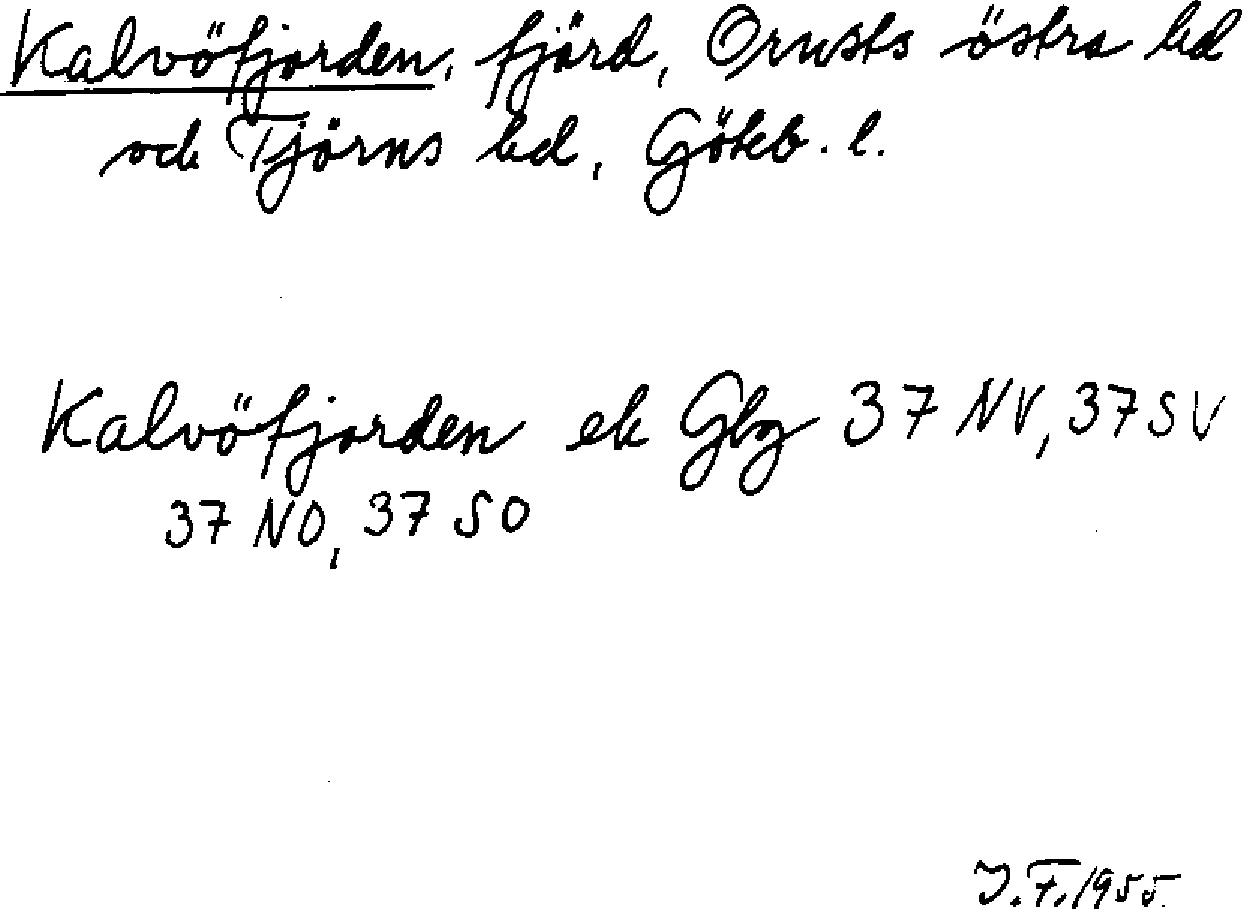 Kalvöfjorden, fjärd, Orusts östra hd
och Tjörns hd, Göteb. l.
Kalvöfjorden ek Gbg 37 NV, 37 SV
37 NO, 37 SO
J.F. 1955.